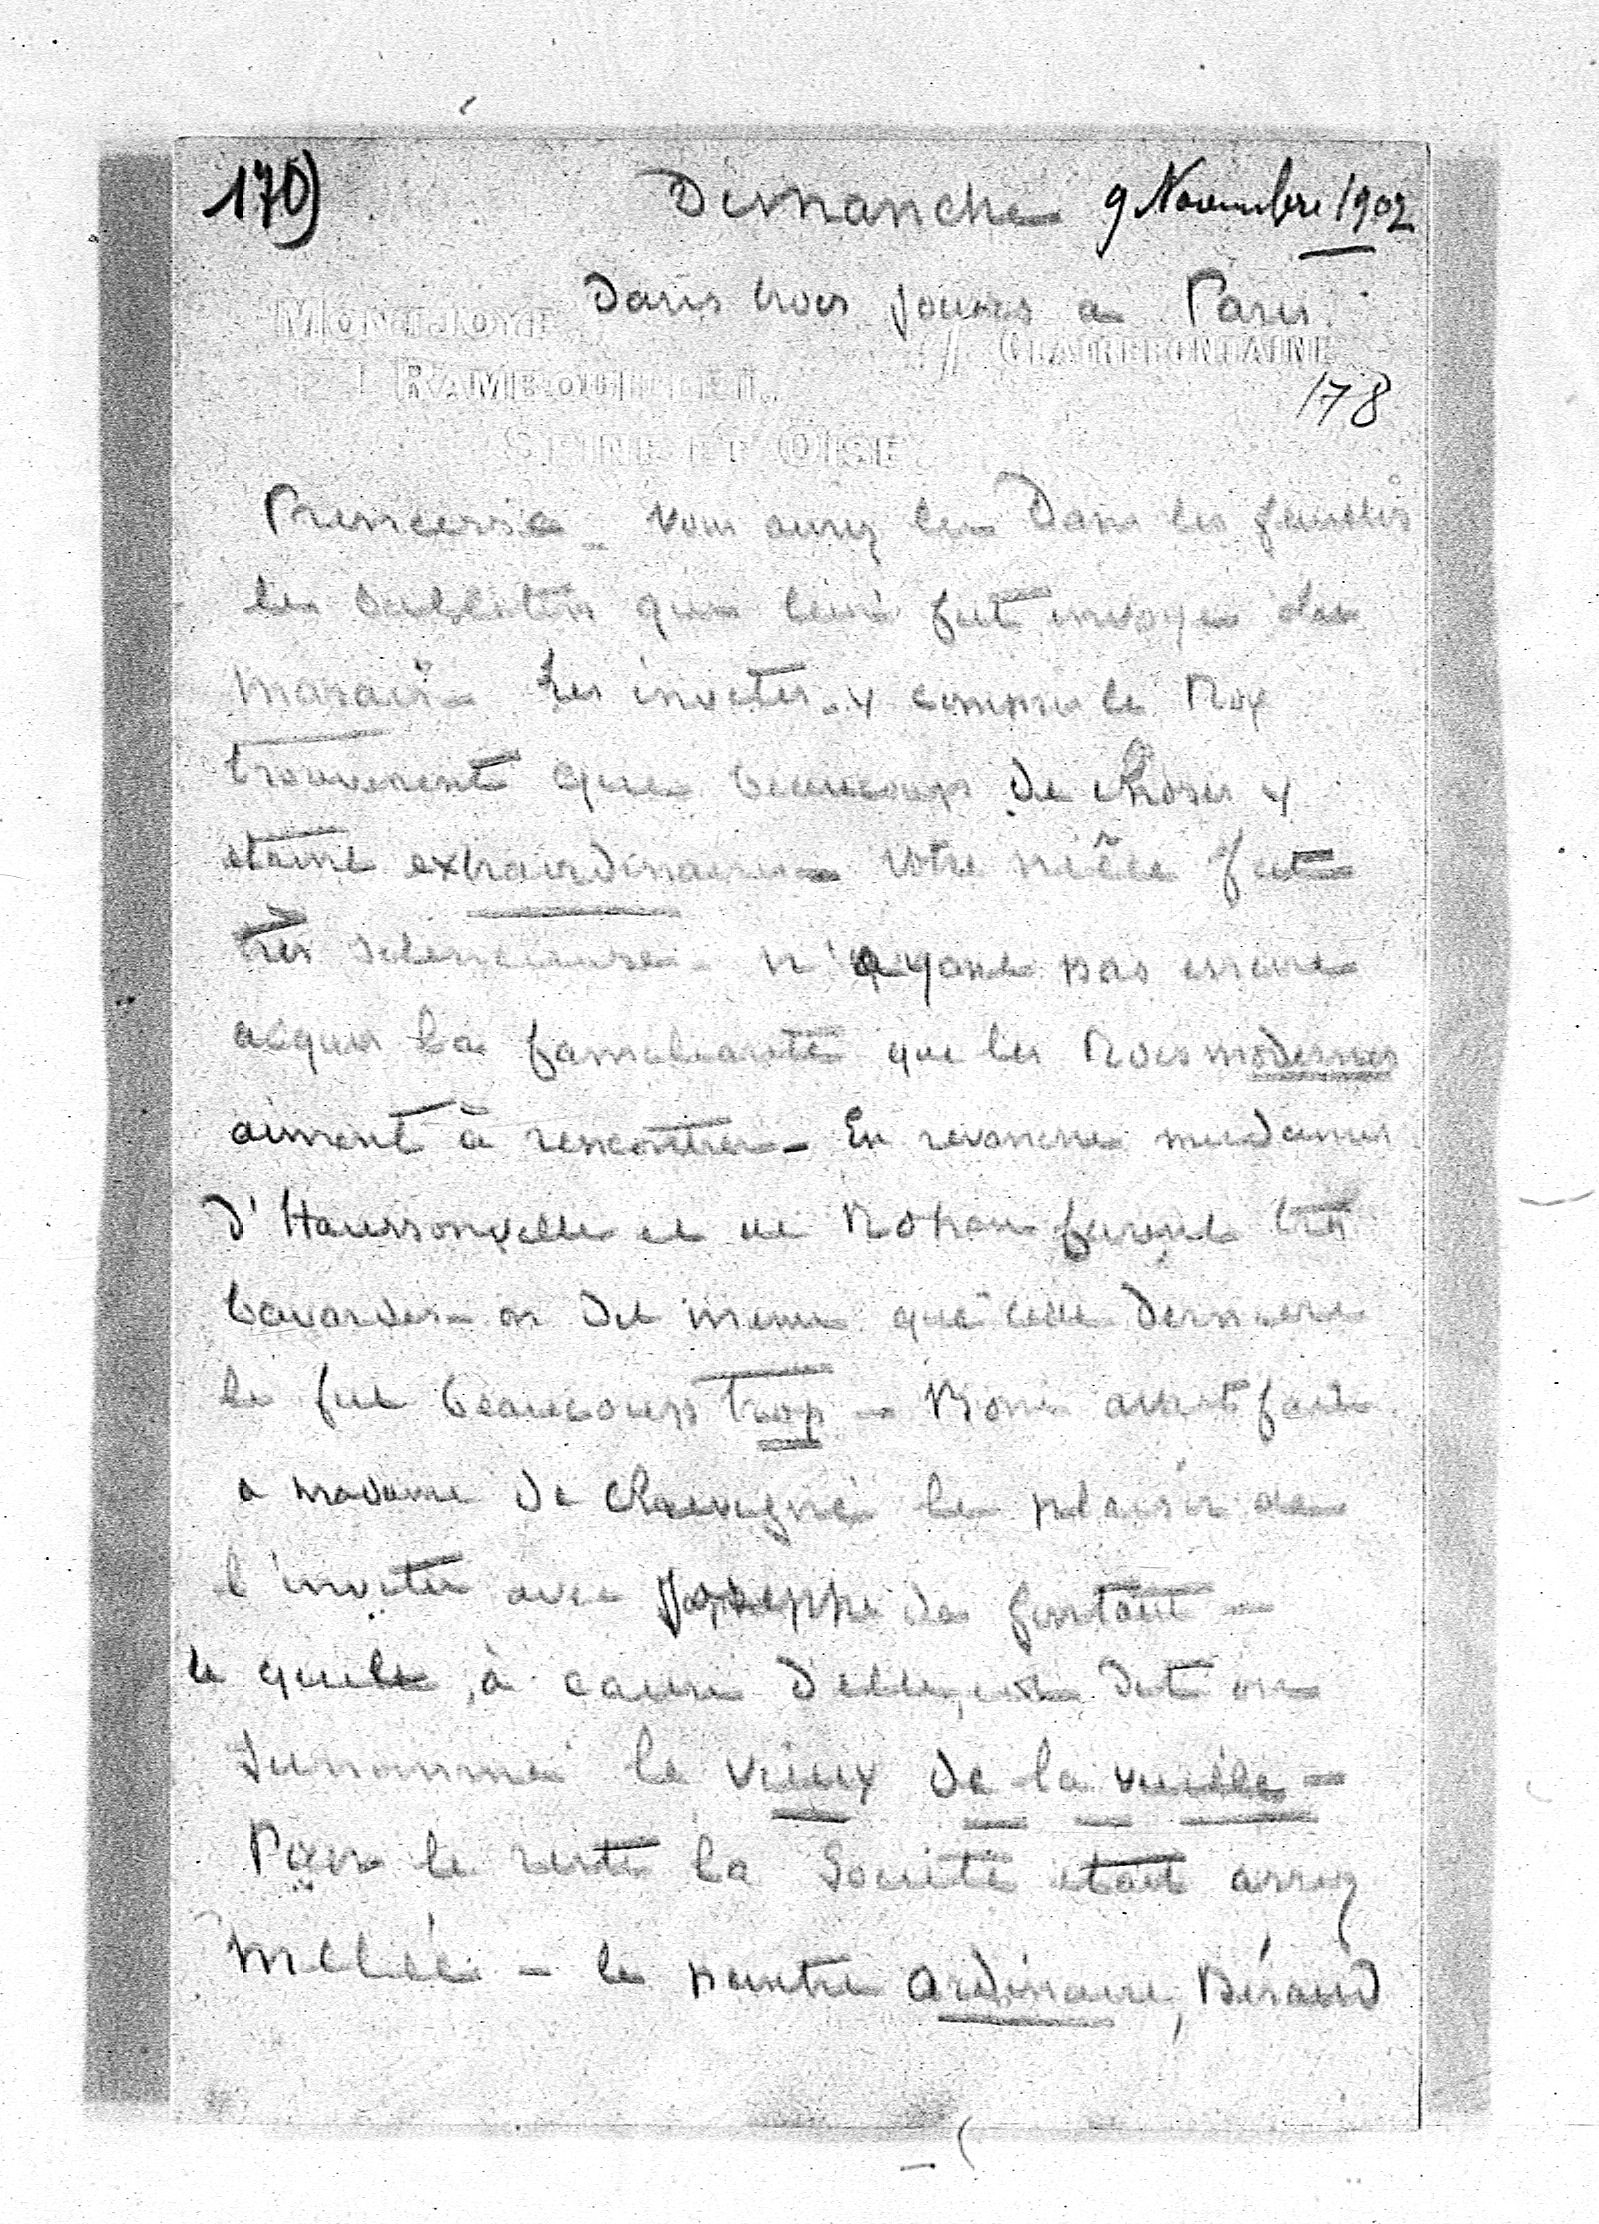 170) Dimanche 9 Novembre 1902
Dans trois jours a Paris
MONTJOYE // CLAIREFONTAINE
RAMBOUILLET
178
SEINE ET OISE
Princesse - vous aurez lu Dans les feuilles
les que leur fut envoyé de
marais - Les invités - y compris le Roy
trouverent que beaucoup de choses y
etaint extraordinaires - votre nièce fut
très silencieuse - n'ayant pas encore
acquis la familiarité que les Rois modernes
aiment à rencontrer - En revanche mesdames
d'Haussonville et de Rohan furent très
bavardes - on dit meme que cette derniere
le fut beaucoup trop - Boni avait fait
a madame de Chevigné le plaisir de
l'inviter avec Joseph de gontaut -
le quel, à cause d'elle, est dit on
surnommé le vieux de la vieille -
Pour le reste la Société etait assez
mêlée - le peintre ordinaire, Béraud